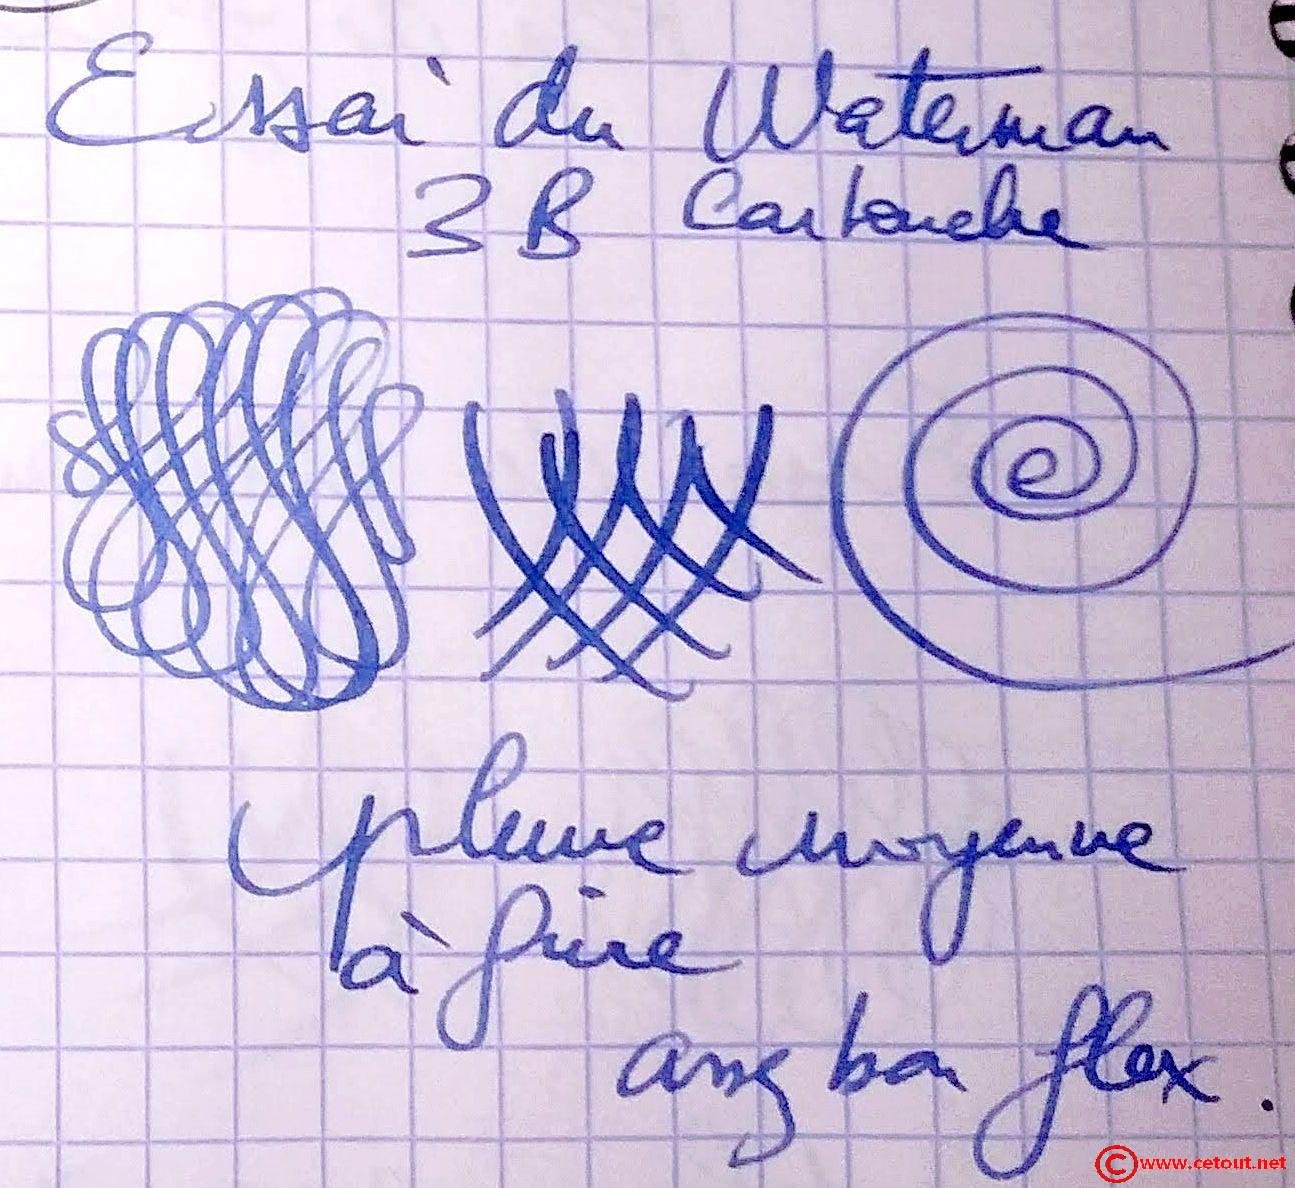 Essai du Waterman
3 B Cartouche
plume moyenne
à fine
assez bon flex.
©www.cetout.net